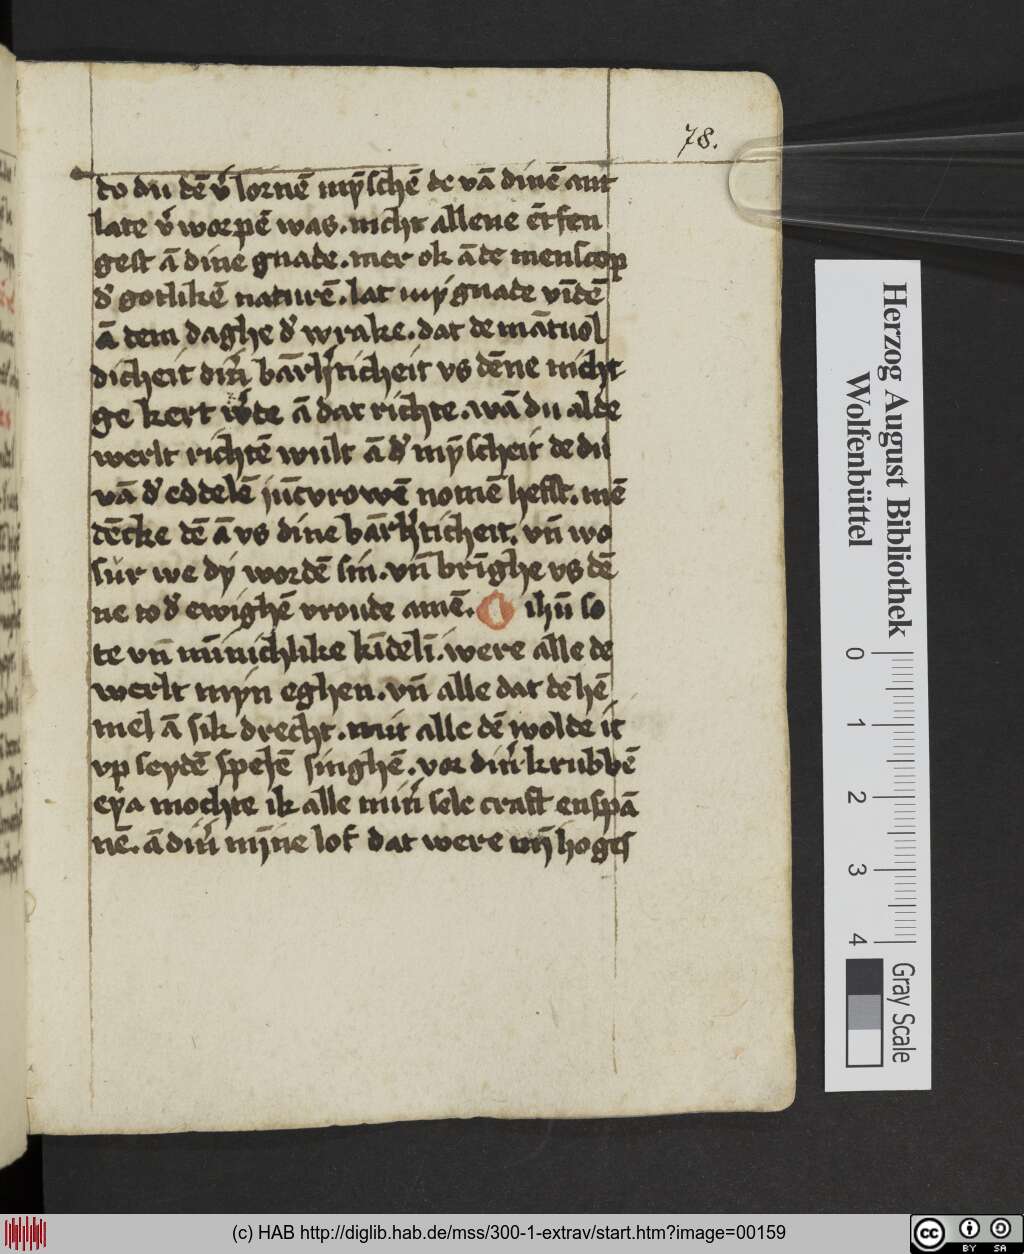 78.
to du dē v̓lornē mȳschē de vā dinē ant
late v̓worpē was. nicht allene ētfen
gest ā dine gnade. mer ok ā de menscop
d̓ gotlikē naturē. lat my gnade vīdē
ā dem daghe d̓ wrake. dat de māāuol
dicheit din̓ bārh̓ticheit vs dēne nicht
ge kert w̓de ā dat richte. wā du al de
werlt richtē wult ā d̓ mȳscheit de du
vā d̓ eddelē jūcvrowē nomē hefst. mē
dēcke dē ā vs dine bārh̓ticheit. vn̄ wo
sur we dy wordē sin. vn̄ brīghe vs dē
ne to d̓ ewighē vroude amē. O ihū so
te vn̄ mīnichlike kīdelī. were alle de
werlt myn eghen. vn̄ alle dat de hē
mel ā sik drecht. mit alle dē wolde it
vp seydē spelē singhē. vor din̓ krubbē
eya mochte ik alle min̓ sele craft enspā
nē. ā din̓ mīne lof dat were mȳ hoges
Herzog August Bibliothek
Wolfenbüttel
0 1 2 3 4
Gray Scale
(c) HAB http://diglib.hab.de/mss/300-1-extrav/start.htm?image=00159
cc BY SA